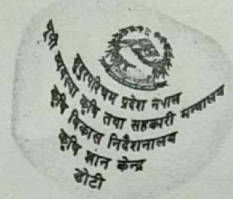 सुदूरपश्चिम प्रदेश नेपाल
भूमी व्यवस्था कृषि तथा सहकारी मन्त्रालय
कृषि विकास निर्देशनालय
कृषि ज्ञान केन्द्र
डोटी